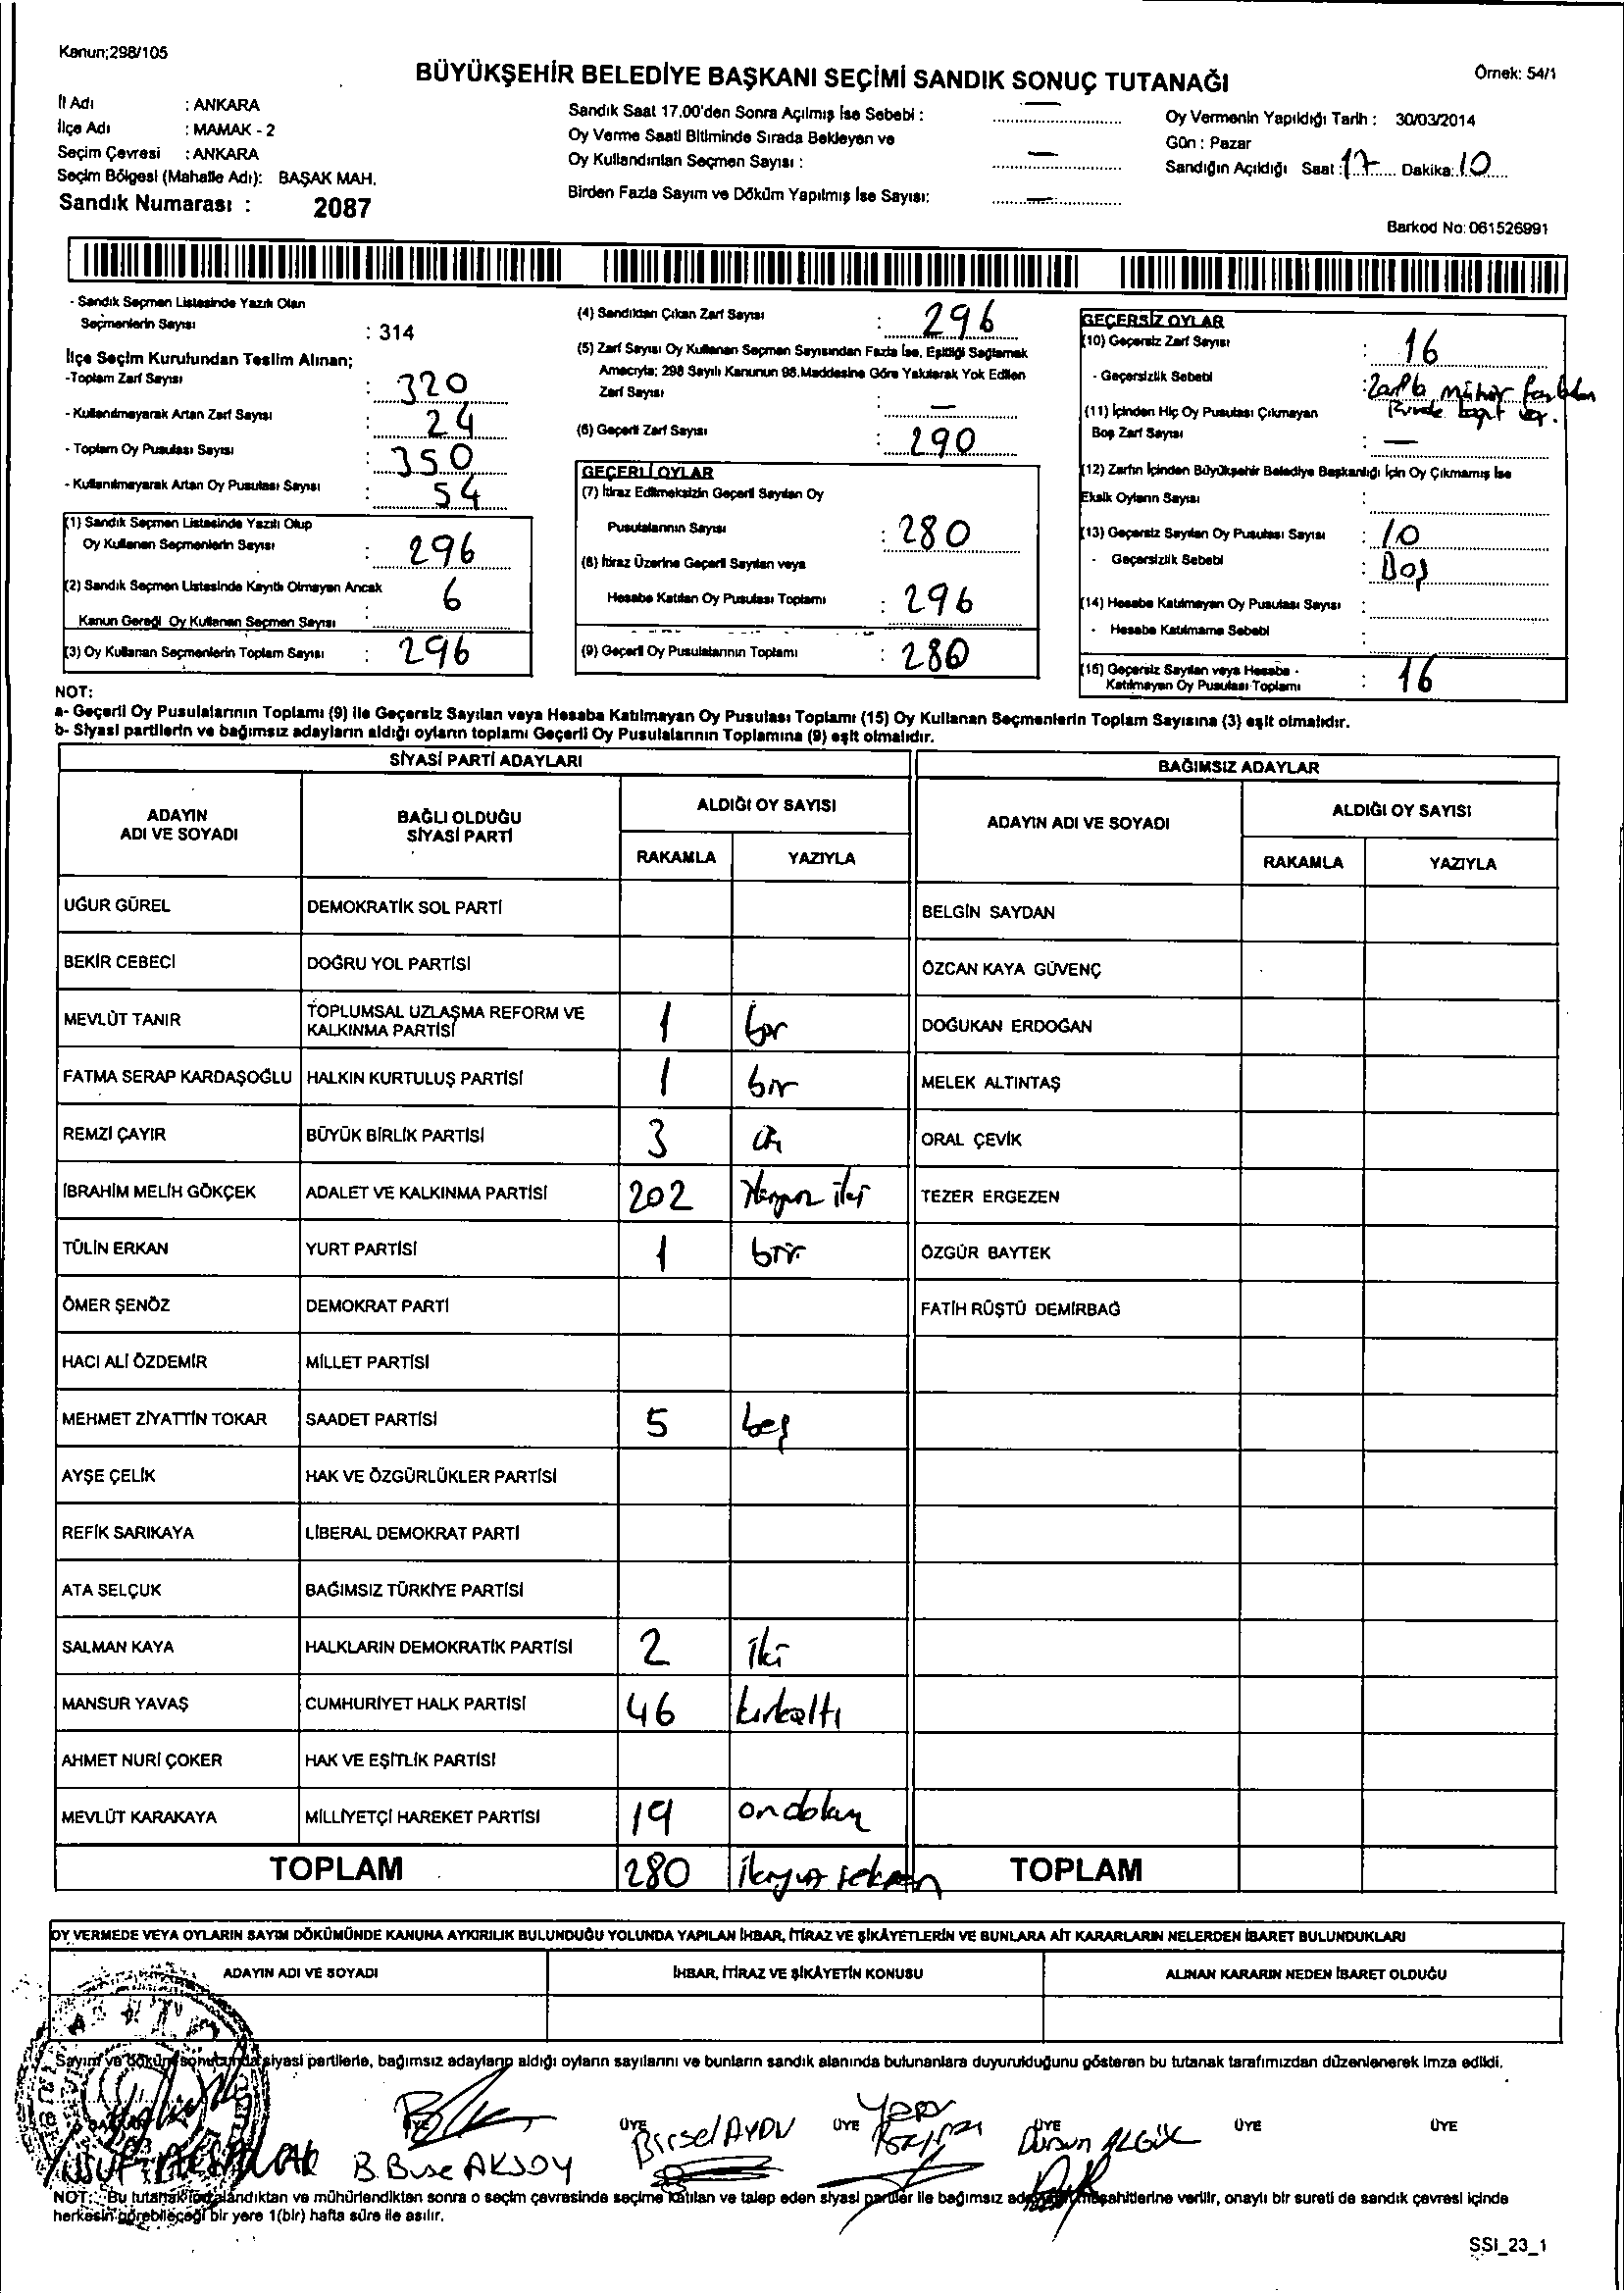 Kanun;298/105
BÜYÜKŞEHİR BELEDİYE BAŞKANI SEÇİMİ SANDIK SONUÇ TUTANAĞI
Örnek: 54/1
İl Adı : ANKARA
İlçe Adı : MAMAK - 2
Seçim Çevresi : ANKARA
Seçim Bölgesi (Mahalle Adı): BAŞAK MAH.
Sandık Numarası : 2087
Sandık Saat 17.00'den Sonra Açılmış İse Sebebi : —
Oy Verme Saati Bitiminde Sırada Bekleyen ve
Oy Kullandırılan Seçmen Sayısı : —
Birden Fazla Sayım ve Döküm Yapılmış İse Sayısı: —
Oy Vermenin Yapıldığı Tarih : 30/03/2014
Gün : Pazar
Sandığın Açıldığı Saat : 17 Dakika: 10
Barkod No: 061526991
- Sandık Seçmen Listesinde Yazılı Olan
Seçmenlerin Sayısı : 314
İlçe Seçim Kurulundan Teslim Alınan;
-Toplam Zarf Sayısı : 320
- Kullanılmayarak Artan Zarf Sayısı : 24
- Toplam Oy Pusulası Sayısı : 350
- Kullanılmayarak Artan Oy Pusulası Sayısı : 54
(1) Sandık Seçmen Listesinde Yazılı Olup
Oy Kullanan Seçmenlerin Sayısı : 296
(2) Sandık Seçmen Listesinde Kayıtlı Olmayan Ancak
Kanun Gereği Oy Kullanan Seçmen Sayısı : 6
(3) Oy Kullanan Seçmenlerin Toplam Sayısı : 296
(4) Sandıktan Çıkan Zarf Sayısı : 296
(5) Zarf Sayısı Oy Kullanan Seçmen Sayısından Fazla İse, Eşitliği Sağlamak
Amacıyla; 298 Sayılı Kanunun 98.Maddesine Göre Yakılarak Yok Edilen
Zarf Sayısı : —
(6) Geçerli Zarf Sayısı : 290
GEÇERLİ OYLAR
(7) İtiraz Edilmeksizin Geçerli Sayılan Oy
Pusulalarının Sayısı : 280
(8) İtiraz Üzerine Geçerli Sayılan veya
Hesaba Katılan Oy Pusulası Toplamı : 296
(9) Geçerli Oy Pusulalarının Toplamı : 280
GEÇERSİZ OYLAR
(10) Geçersiz Zarf Sayısı : 16
- Geçersizlik Sebebi :
(11) İçinden Hiç Oy Pusulası Çıkmayan
Boş Zarf Sayısı : —
(12) Zarfın İçinden Büyükşehir Belediye Başkanlığı İçin Oy Çıkmamış İse
Eksik Oyların Sayısı :
(13) Geçersiz Sayılan Oy Pusulası Sayısı : 10
- Geçersizlik Sebebi : Boş
(14) Hesaba Katılmayan Oy Pusulası Sayısı :
- Hesaba Katılmama Sebebi :
(15) Geçersiz Sayılan veya Hesaba -
Katılmayan Oy Pusulası Toplamı : 16
NOT:
a- Geçerli Oy Pusulalarının Toplamı (9) ile Geçersiz Sayılan veya Hesaba Katılmayan Oy Pusulası Toplamı (15) Oy Kullanan Seçmenlerin Toplam Sayısına (3) eşit olmalıdır.
b- Siyasi partilerin ve bağımsız adayların aldığı oyların toplamı Geçerli Oy Pusulalarının Toplamına (9) eşit olmalıdır.
SİYASİ PARTİ ADAYLARI
BAĞIMSIZ ADAYLAR
ADAYIN
ADI VE SOYADI
BAĞLI OLDUĞU
SİYASİ PARTİ
ALDIĞI OY SAYISI
RAKAMLA YAZIYLA
ADAYIN ADI VE SOYADI
ALDIĞI OY SAYISI
RAKAMLA YAZIYLA
UĞUR GÜREL DEMOKRATİK SOL PARTİ BELGİN SAYDAN
BEKİR CEBECİ DOĞRU YOL PARTİSİ ÖZCAN KAYA GÜVENÇ
MEVLÜT TANIR TOPLUMSAL UZLAŞMA REFORM VE
KALKINMA PARTİSİ 1 bir DOĞUKAN ERDOĞAN
FATMA SERAP KARDAŞOĞLU HALKIN KURTULUŞ PARTİSİ 1 bir MELEK ALTINTAŞ
REMZİ ÇAYIR BÜYÜK BİRLİK PARTİSİ 3 ORAL ÇEVİK
İBRAHİM MELİH GÖKÇEK ADALET VE KALKINMA PARTİSİ 202 TEZER ERGEZEN
TÜLİN ERKAN YURT PARTİSİ 1 bir ÖZGÜR BAYTEK
ÖMER ŞENÖZ DEMOKRAT PARTİ FATİH RÜŞTÜ DEMİRBAĞ
HACI ALİ ÖZDEMİR MİLLET PARTİSİ
MEHMET ZİYATTİN TOKAR SAADET PARTİSİ 5 beş
AYŞE ÇELİK HAK VE ÖZGÜRLÜKLER PARTİSİ
REFİK SARIKAYA LİBERAL DEMOKRAT PARTİ
ATA SELÇUK BAĞIMSIZ TÜRKİYE PARTİSİ
SALMAN KAYA HALKLARIN DEMOKRATİK PARTİSİ 2 iki
MANSUR YAVAŞ CUMHURİYET HALK PARTİSİ 46 kırkaltı
AHMET NURİ ÇOKER HAK VE EŞİTLİK PARTİSİ
MEVLÜT KARAKAYA MİLLİYETÇİ HAREKET PARTİSİ 19 ondokuz
TOPLAM 280 ikiyüz seksen TOPLAM
OY VERMEDE VEYA OYLARIN SAYIM DÖKÜMÜNDE KANUNA AYKIRILIK BULUNDUĞU YOLUNDA YAPILAN İHBAR, İTİRAZ VE ŞİKÂYETLERİN VE BUNLARA AİT KARARLARIN NELERDEN İBARET BULUNDUKLARI
ADAYIN ADI VE SOYADI İHBAR, İTİRAZ VE ŞİKÂYETİN KONUSU ALINAN KARARIN NEDEN İBARET OLDUĞU
Sayım ve döküm sonucunda siyasi partilerle, bağımsız adayların aldığı oyların sayılarını ve bunların sandık alanında bulunanlara duyurulduğunu gösteren bu tutanak tarafımızdan düzenlenerek imza edildi.
ÜYE ÜYE ÜYE ÜYE ÜYE ÜYE
B. Buse AKSOY Birsel AYDIN Dursun
NOT: Bu tutanak imzalandıktan ve mühürlendikten sonra o seçim çevresinde seçime katılan ve talep eden siyasi partiler ile bağımsız adayların müşahitlerine verilir, onaylı bir sureti de sandık çevresi içinde
herkesin görebileceği bir yere 1(bir) hafta süre ile asılır.
SSI_23_1